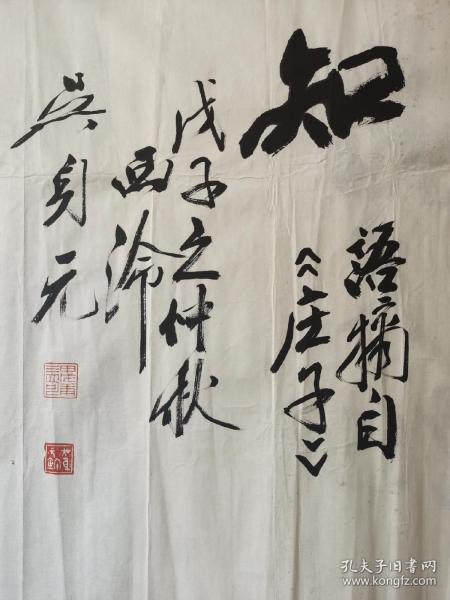 知
語摘自
《庄子》
戊子之仲秋
西泠
吴身元
孔夫子旧书网
www.kongfz.com